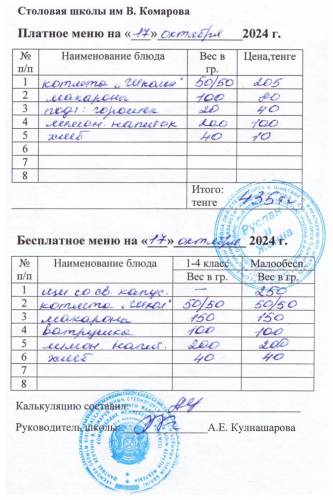 Столовая школы им В. Комарова
Платное меню на «17» октября 2024 г.
№ п/п Наименование блюда Вес в гр. Цена,тенге
1 котлета „Школьн" 50/50 205
2 макароны 100 80
3 подг: горошек 20 40
4 лимон. напиток 200 100
5 хлеб 40 10
6
7
8
Итого: тенге 435тг
Руслан и
Бесплатное меню на «17» октября 2024 г.
№ п/п Наименование блюда 1-4 класс Малообесп.
Вес в гр. Вес в гр.
1 щи со св. капус. — 250
2 котлета „Школ" 50/50 50/50
3 макароны 150 150
4 ватрушка 100 100
5 лимон. нап. 200 200
6 хлеб 40 40
7
8
Калькуляцию составил
Руководитель школы: А.Е. Кулнашарова